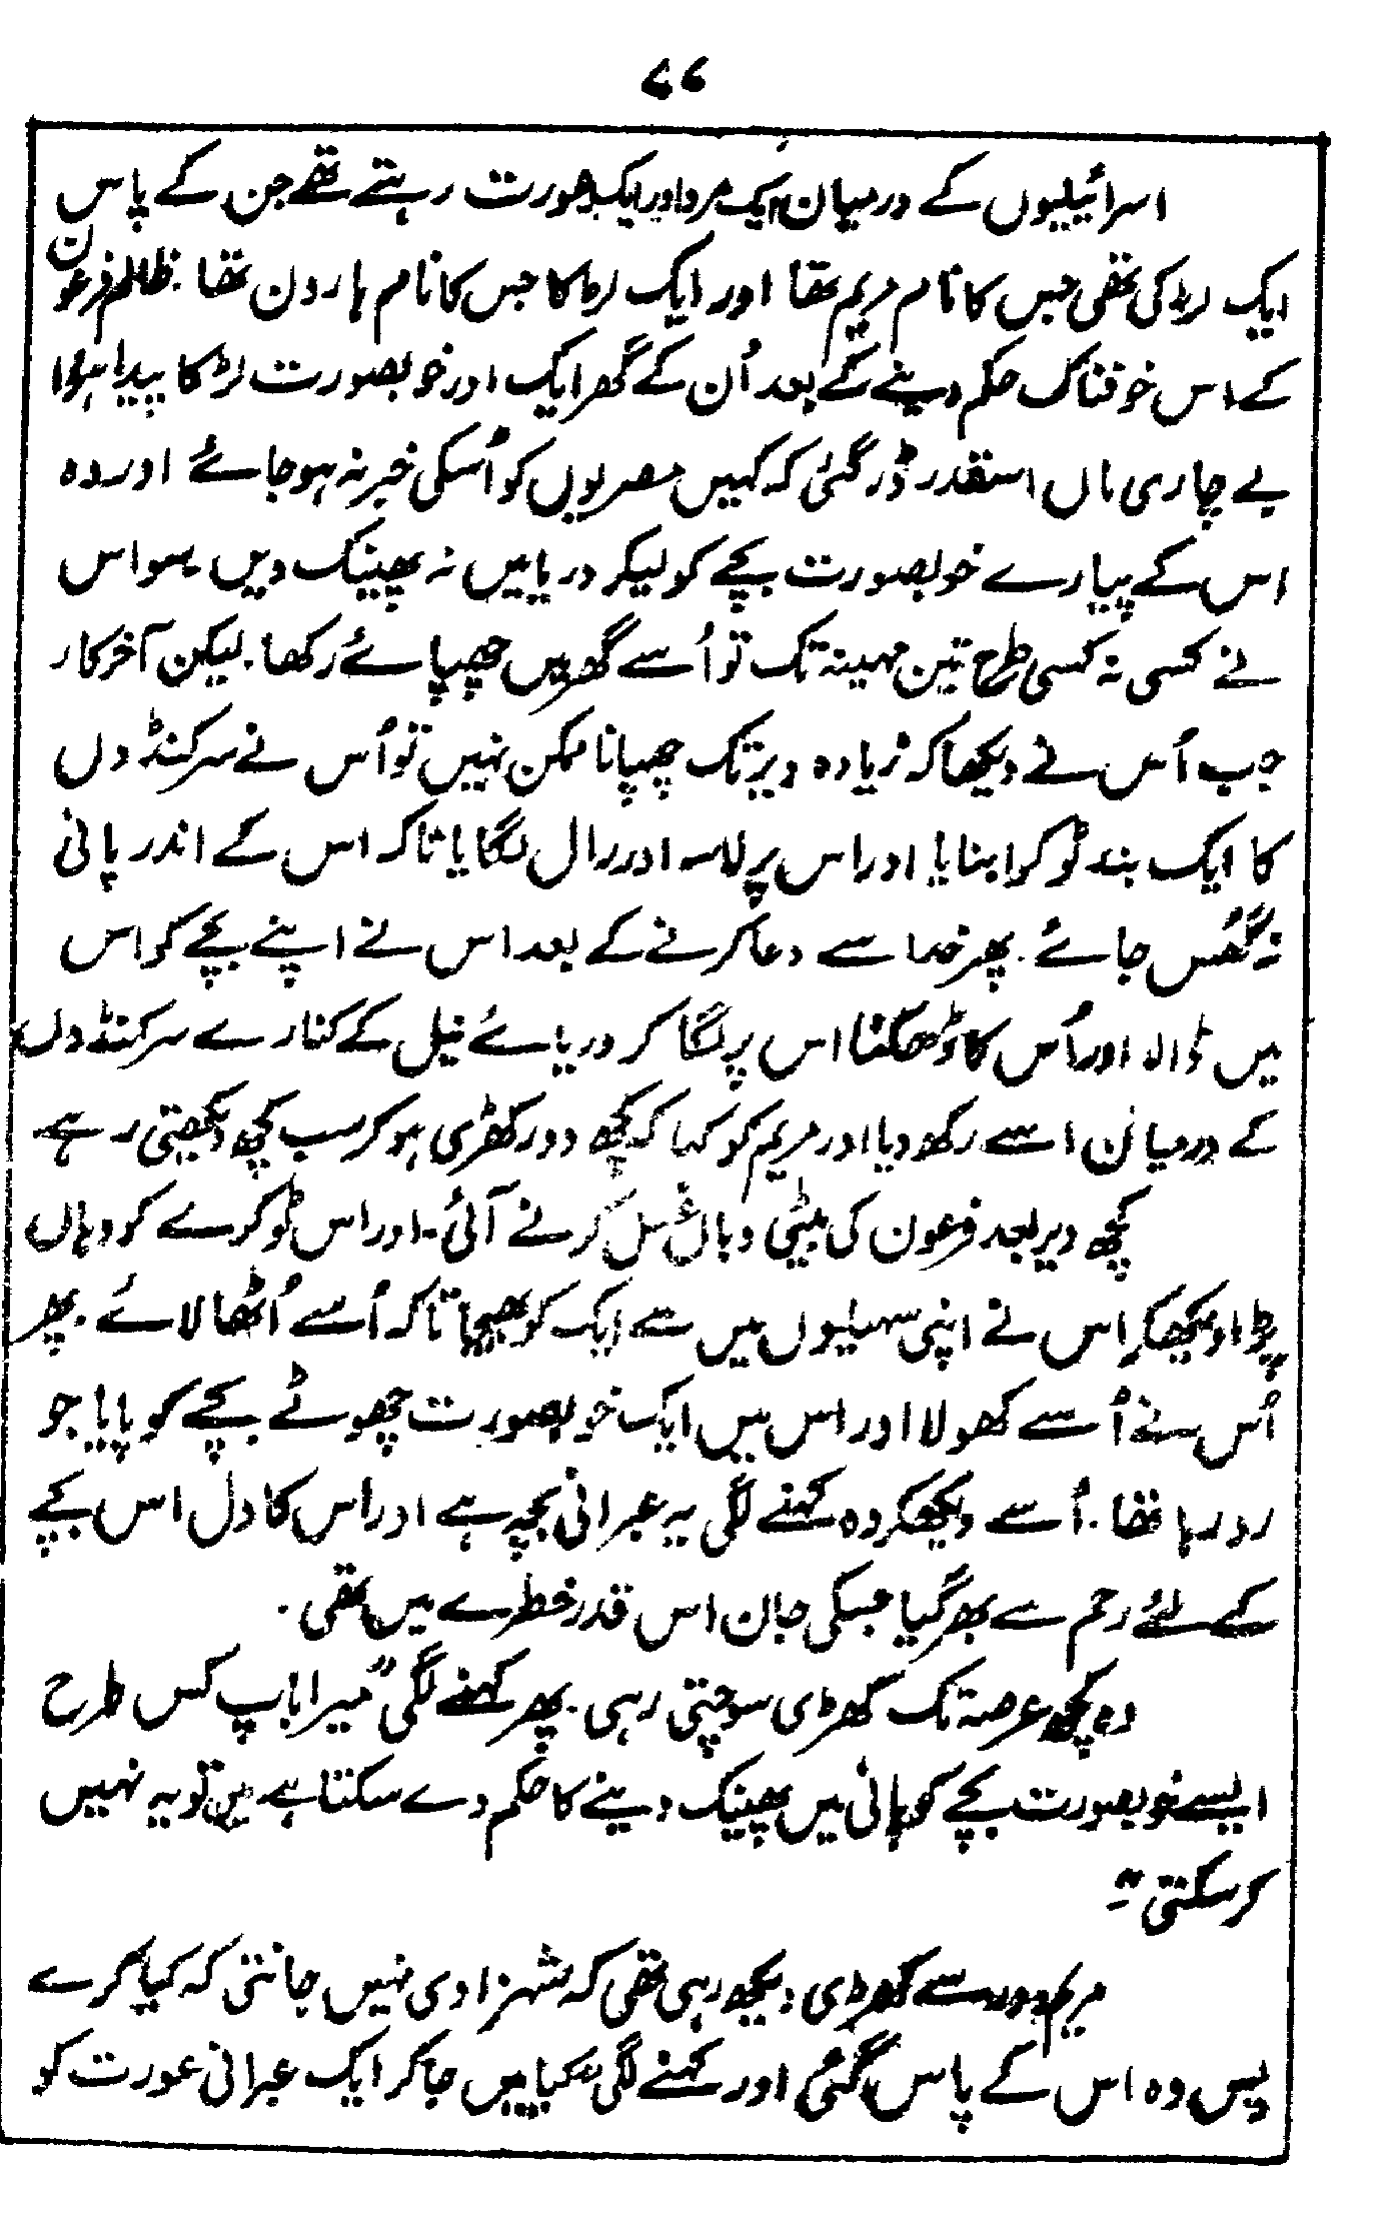 ۷۶
اسرائیلیوں کے درمیان ایک مرد اور ایک عورت رہتے تھے جن کے پاس
ایک لڑکی تھی جس کا نام مریم تھا اور ایک لڑکا جس کا نام ہارون تھا۔ ظالم فرعون
کے اس خوفناک حکم دینے کے بعد اُن کے گھر ایک اور خوبصورت لڑکا پیدا ہؤا
بے چاری ماں اسقدر ڈر گئی کہ کہیں مصریوں کو اُسکی خبر نہ ہو جائے اور وہ
اس کے پیارے خوبصورت بچے کو لیکر دریا میں نہ پھینک دیں۔ سو اس
نے کسی نہ کسی طرح تین مہینہ تک تو اُسے گھر میں چھپائے رکھا۔ لیکن آخر کار
جب اُس نے دیکھا کہ زیادہ دیر تک چھپانا ممکن نہیں تو اُس نے سرکنڈوں
کا ایک بند ٹوکرا بنایا اور اس پر لاسہ اور رال لگایا تاکہ اس کے اندر پانی
نہ گھُس جائے۔ پھر خدا سے دعا کرنے کے بعد اس نے اپنے بچے کو اس
میں ڈالا اور اُس کا ڈھکنا اس پر لگا کر دریائے نیل کے کنارے سرکنڈوں
کے درمیان اسے رکھ دیا اور مریم کو کہا کہ کچھ دور کھڑی ہو کر سب کچھ دیکھتی رہے
کچھ دیر بعد فرعون کی بیٹی وہاں غسل کرنے آئی۔ اور اس ٹوکرے کو وہاں
پڑا دیکھکر اس نے اپنی سہیلیوں میں سے ایک کو بھیجا تاکہ اُسے اُٹھا لائے۔ پھر
اُس نے اُسے کھولا اور اس میں ایک خوبصورت چھوٹے بچے کو پایا جو
رو رہا تھا۔ اُسے دیکھکر وہ کہنے لگی یہ عبرانی بچہ ہے اور اس کا دل اس بچے
کے لئے رحم سے بھر گیا جسکی جان اس قدر خطرے میں تھی۔
وہ کچھ عرصہ تک کھڑی سوچتی رہی۔ پھر کہنے لگی "میرا باپ کس طرح
ایسے خوبصورت بچے کو پانی میں پھینک دینے کا حکم دے سکتا ہے۔ میں تو یہ نہیں
کر سکتی"۔
مریم دور سے کھڑی دیکھ رہی تھی کہ شہزادی نہیں جانتی کہ کیا کرے
پس وہ اس کے پاس گئی اور کہنے لگی "کیا میں جا کر ایک عبرانی عورت کو